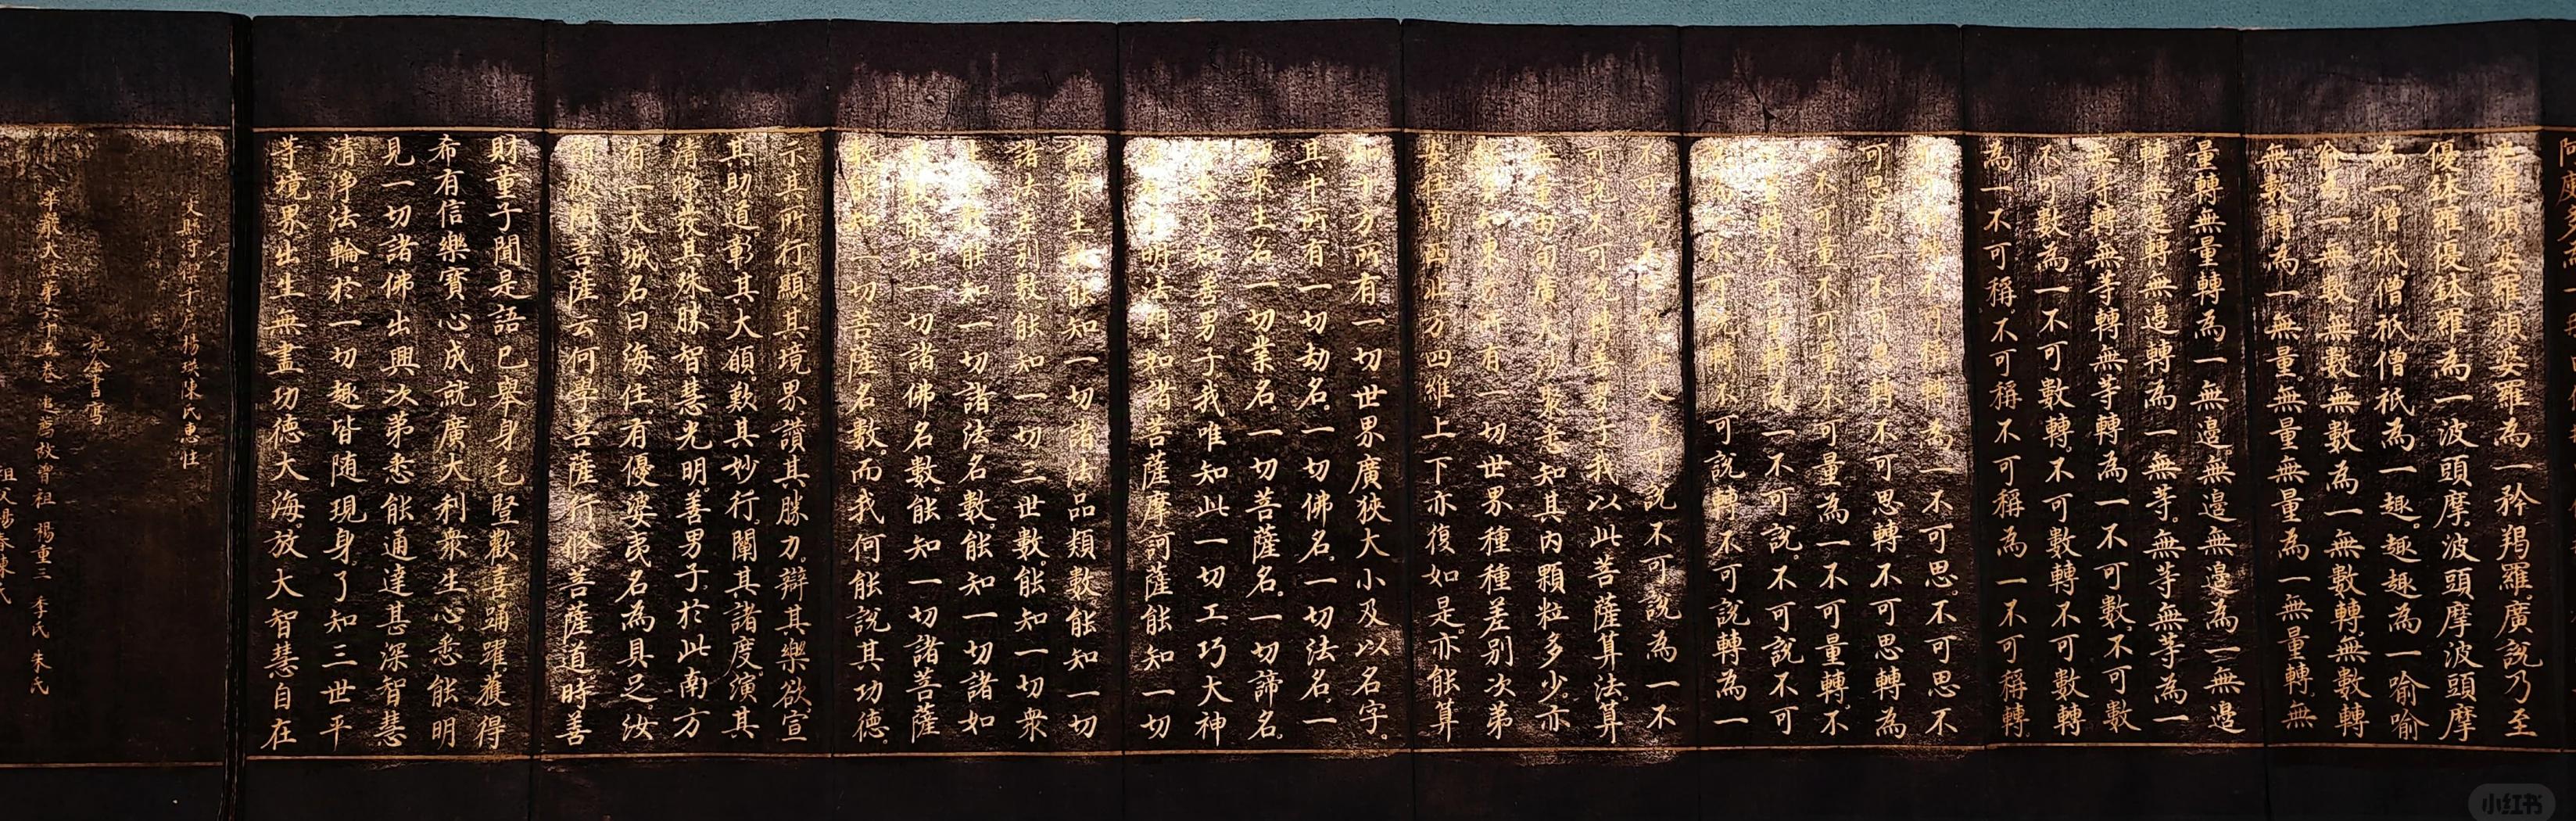 婆羅頻婆羅頻婆羅為一矜羯羅廣說乃至
優鉢羅優鉢羅為一波頭摩波頭摩波頭摩
為一僧祇僧祇僧祇為一趣趣趣為一喻喻
喻為一無數無數無數為一無數轉無數轉
無數轉為一無量無量無量為一無量轉無
量轉無量轉為一無邊無邊無邊為一無邊
轉無邊轉無邊轉為一無等無等無等為一
無等轉無等轉無等轉為一不可數不可數
不可數為一不可數轉不可數轉不可數轉
為一不可稱不可稱不可稱為一不可稱轉
不可稱轉不可稱轉為一不可思不可思不
可思為一不可思轉不可思轉不可思轉為
一不可量不可量不可量為一不可量轉不
可量轉不可量轉為一不可說不可說不可
說為一不可說轉不可說轉不可說轉為一
不可說不可說此又不可說不可說為一不
可說不可說轉善男子我以此菩薩算法算
無量由旬廣大沙聚悉知其內顆粒多少亦
能算知東方所有一切世界種種差別次第
安住南西北方四維上下亦復如是亦能算
知十方所有一切世界廣狹大小及以名字
其中所有一切劫名一切佛名一切法名一
切眾生名一切業名一切菩薩名一切諦名
皆悉了知善男子我唯知此一切工巧大神
通智光明法門如諸菩薩摩訶薩能知一切
諸眾生數能知一切諸法品類數能知一切
諸法差別數能知一切三世數能知一切眾
生名數能知一切諸法名數能知一切諸如
來數能知一切諸佛名數能知一切諸菩薩
數能知一切菩薩名數而我何能說其功德
示其所行顯其境界讚其勝力辯其樂欲宣
其助道彰其大願歎其妙行闡其諸度演其
清淨發其殊勝智慧光明善男子於此南方
有一大城名曰海住有優婆夷名為具足汝
詣彼問菩薩云何學菩薩行修菩薩道時善
財童子聞是語已舉身毛豎歡喜踊躍獲得
希有信樂寶心成就廣大利眾生心悉能明
見一切諸佛出興次第悉能通達甚深智慧
清淨法輪於一切趣皆隨現身了知三世平
等境界出生無盡功德大海放大智慧自在
縣守禦千戶楊瑛陳氏惠住
施金書寫
華嚴大經第六十五卷 追薦故曾祖 楊重三 李氏 朱氏
祖父楊春陳氏
小红书